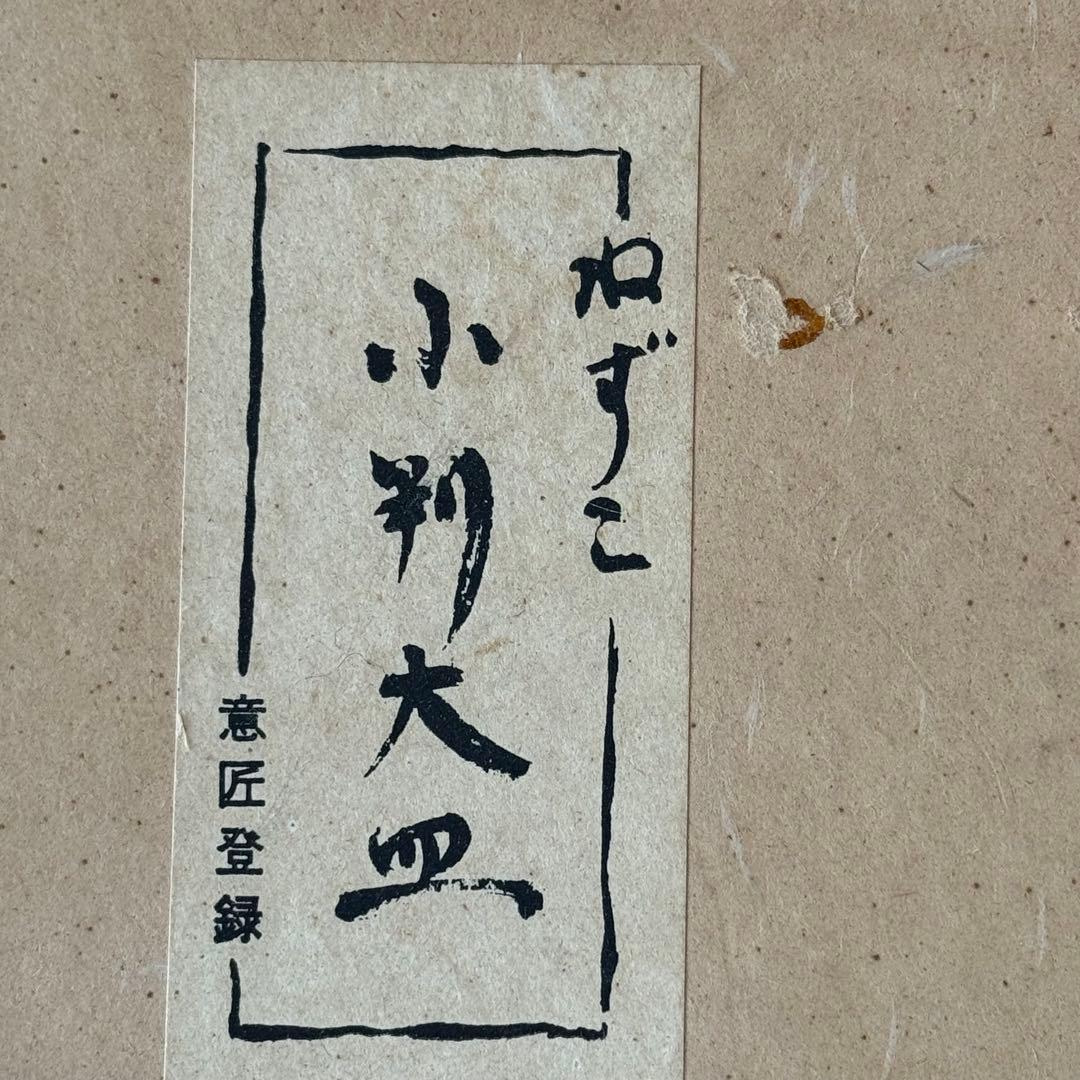 ねずこ
小判大皿
意匠登録